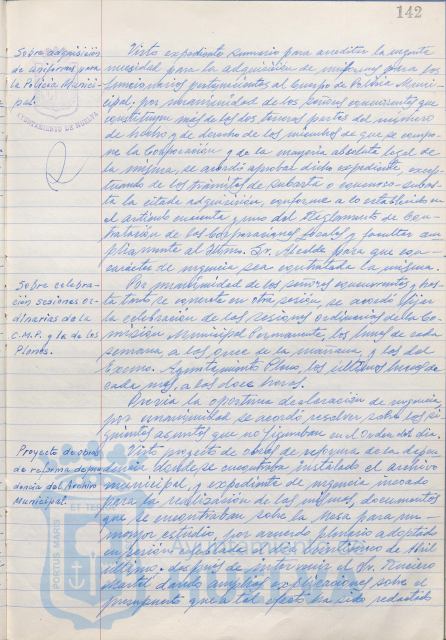 142
Sobre adquisición
de uniformes para
la Policía Munici-
pal.
AYUNTAMIENTO DE HUELVA
Visto expediente sumario para acreditar la urgente
necesidad para la adquisición de uniformes para los
funcionarios pertenecientes al Cuerpo de Policía Muni-
cipal, por unanimidad de los señores concurrentes que
constituyen más de las dos terceras partes del número
de hecho y de derecho de los miembros de que se compo-
ne la Corporación y de la mayoría absoluta legal de
la misma, se acordó aprobar dicho expediente, excep-
tuando de los trámites de subasta o concurso-subas-
ta la citada adquisición, conforme a lo establecido en
el artículo cuarenta y uno del Reglamento de Con-
tratación de las Corporaciones Locales y facultar am-
pliamente al Iltmo. Sr. Alcalde para que con
carácter de urgencia sea contratada la misma.
Sobre celebra-
ción sesiones or-
dinarias de la
C.M.P. y la de los
Plenos.
Por unanimidad de los señores concurrentes y has-
ta tanto se concrete en otra sesión, se acordó fijar
la celebración de las sesiones ordinarias de la Co-
misión Municipal Permanente, los lunes de cada
semana, a las once de la mañana, y las del
Excmo. Ayuntamiento Pleno, los últimos lunes de
cada mes, a las doce horas.
Previa la oportuna declaración de urgencia,
por unanimidad se acordó resolver sobre los si-
guientes asuntos que no figuraban en el Orden del día.
Proyecto de obras
de reforma de
dencia del Archivo
Municipal.
Visto proyecto de obras de reforma de la depen-
dencia donde se encontraba instalado el archivo
municipal, y expediente de urgencia incoado
para la realización de las mismas, documentos
que se encontraban sobre la Mesa para su
mayor estudio, por acuerdo plenario adoptado
en sesión celebrada el día veinticinco de Abril
último. Después de intervenir el Sr.
dando amplias explicaciones sobre el
presupuesto que a tal efecto ha sido redactado
PORTUS MARIS ET TER